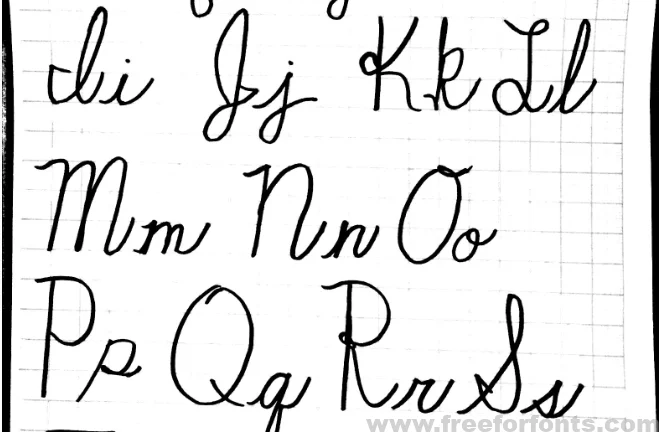 Ii Jj Kk Ll
Mm Nn Oo
Pp Qq Rr Ss
www.freeforfonts.com